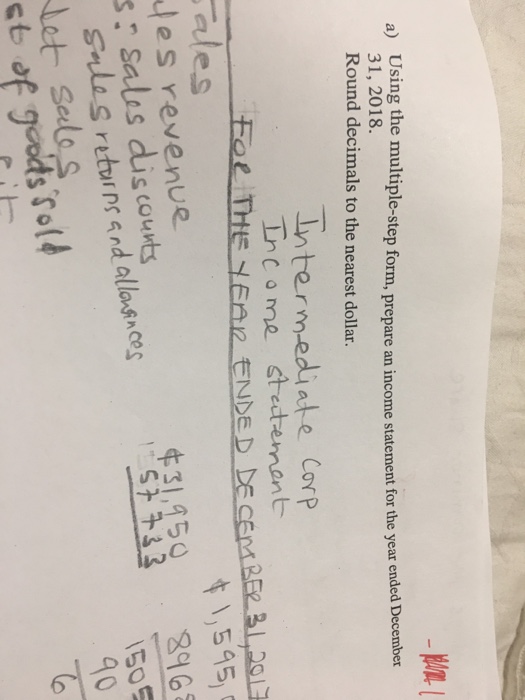 a) Using the multiple-step form, prepare an income statement for the year ended December
31, 2018.
Round decimals to the nearest dollar.
Intermediate Corp
Income statement
FOR THE YEAR ENDED DECEMBER 31, 2017
Sales
les revenue $1,595,
s: sales discounts $31,950
sales returns and allowances 57 733 896
Net sales 1505
st of goods sold 90
6